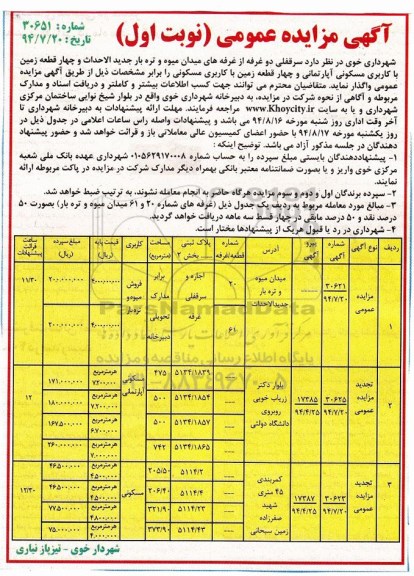 آگهی مزایده عمومی (نوبت اول)
شماره: ۳۰۶۵۱
تاریخ: ۹۴/۷/۲۰
شهرداری خوی در نظر دارد سرقفلی دو غرفه از غرفه های میدان میوه و تره بار جدید الاحداث و چهار قطعه زمین
با کاربری مسکونی آپارتمانی و چهار قطعه زمین با کاربری مسکونی را برابر مشخصات ذیل از طریق آگهی مزایده
عمومی واگذار نماید. متقاضیان محترم می توانند جهت کسب اطلاعات بیشتر و کاملتر و دریافت اسناد و مدارک
مربوطه و آگاهی از نحوه شرکت در مزایده، به دبیرخانه شهرداری خوی واقع در بلوار شیخ نوایی ساختمان مرکزی
شهرداری و یا به سایت www.Khoycity.ir مراجعه فرمایند. مهلت ارائه پیشنهادات به دبیرخانه شهرداری تا
آخر وقت اداری روز شنبه مورخه ۹۴/۸/۱۶ می باشد و پیشنهادات واصله راس ساعات اعلامی در جدول ذیل در
روز یکشنبه مورخه ۹۴/۸/۱۷ با حضور اعضای کمیسیون عالی معاملاتی باز و قرائت خواهد شد و حضور پیشنهاد
دهندگان در جلسه مذکور آزاد می باشد. توضیح اینکه:
۱- پیشنهاددهندگان بایستی مبلغ سپرده را به حساب شماره ۰۱۰۵۶۲۹۱۷۰۰۰۸ شهرداری عهده بانک ملی شعبه
مرکزی خوی واریز و یا بصورت ضمانتنامه معتبر بانکی بهمراه دیگر مدارک شرکت در مزایده در پاکت مربوطه ارائه
نمایند.
۲- سپرده برندگان اول و دوم و سوم مزایده هرگاه حاضر به انجام معامله نشوند، به ترتیب ضبط خواهد شد.
۳- مبالغ مورد معامله مربوط به ردیف ۱ جدول ذیل (غرفه های شماره ۲۰ و ۶۱ میدان میوه و تره بار) بصورت ۵۰
درصد نقد و ۵۰ درصد مابقی در چهار قسط سه ماهه دریافت خواهد گردید.
۴- شهرداری در رد یا قبول هریک از پیشنهادها مختار است.
ردیف نوع آگهی شماره آگهی پیرو آگهی آدرس شماره قطعه/غرفه پلاک ثبتی بخش ۲ مساحت (مترمربع) کاربری قیمت پایه (ریال) مبلغ سپرده (ریال) ساعت قرائت پیشنهادات
۱ مزایده عمومی ۳۰۶۲۱ ۹۴/۷/۲۰ ----- میدان میوه و تره بار جدیدالاحداث ۲۰ ۶۱ اجاره و سرقفلی غرفه برابر مدارک تحویلی دبیرخانه فروش میوه و تره بار ۲۰۰,۰۰۰,۰۰۰ ۲۰۰,۰۰۰,۰۰۰ ۱۱/۳۰
۲ تجدید مزایده عمومی ۳۰۶۲۵ ۹۴/۷/۲۰ ۱۷۳۸۵ ۹۴/۴/۲۵ بلوار دکتر زریاب خویی روبروی دانشگاه دولتی مسکونی آپارتمانی ۱۲
۵۱۳۴/۱۸۳۹ ۴۷۵ هرمترمربع ۷۲۰۰,۰۰۰ ۱۷۱,۰۰۰,۰۰۰
۵۱۳۴/۱۸۵۴ ۵۰۰ هرمترمربع ۷,۲۰۰,۰۰۰ ۱۸۰,۰۰۰,۰۰۰
۵۱۳۴/۱۸۵۷ ۵۰۰ هرمترمربع ۶,۷۰۰,۰۰۰ ۱۶۷,۵۰۰,۰۰۰
۵۱۳۴/۱۸۶۵ ۷۴۲ هرمترمربع ۷,۰۰۰,۰۰۰ ۲۶۰,۰۰۰,۰۰۰
۳ تجدید مزایده عمومی ۳۰۶۲۳ ۹۴/۷/۲۰ ۱۷۳۸۷ ۹۴/۴/۲۵ کمربندی ۴۵ متری شهید صفرزاده زمین سبحانی مسکونی ۱۲/۳۰
۵۱۱۴/۲ ۲۰۵/۵۰ هرمترمربع ۴۶,۵۰۰,۰۰۰
۵۱۱۴/۴ ۲۰۶/۴۰ هرمترمربع ۴۵۰۰,۰۰۰ ۴۶,۵۰۰,۰۰۰
۵۱۱۴/۲۳ ۳۲۱/۹۰ هرمترمربع ۴,۸۰۰,۰۰۰ ۷۷,۵۰۰,۰۰۰
۵۱۱۴/۴۳ ۳۷۳/۹۰ هرمترمربع ۴,۰۰۰,۰۰۰ ۷۵,۰۰۰,۰۰۰
شهردار خوی - تیزپاز نیاری
ParsNamadData
پایگاه اطلاع رسانی مناقصه و مزایده